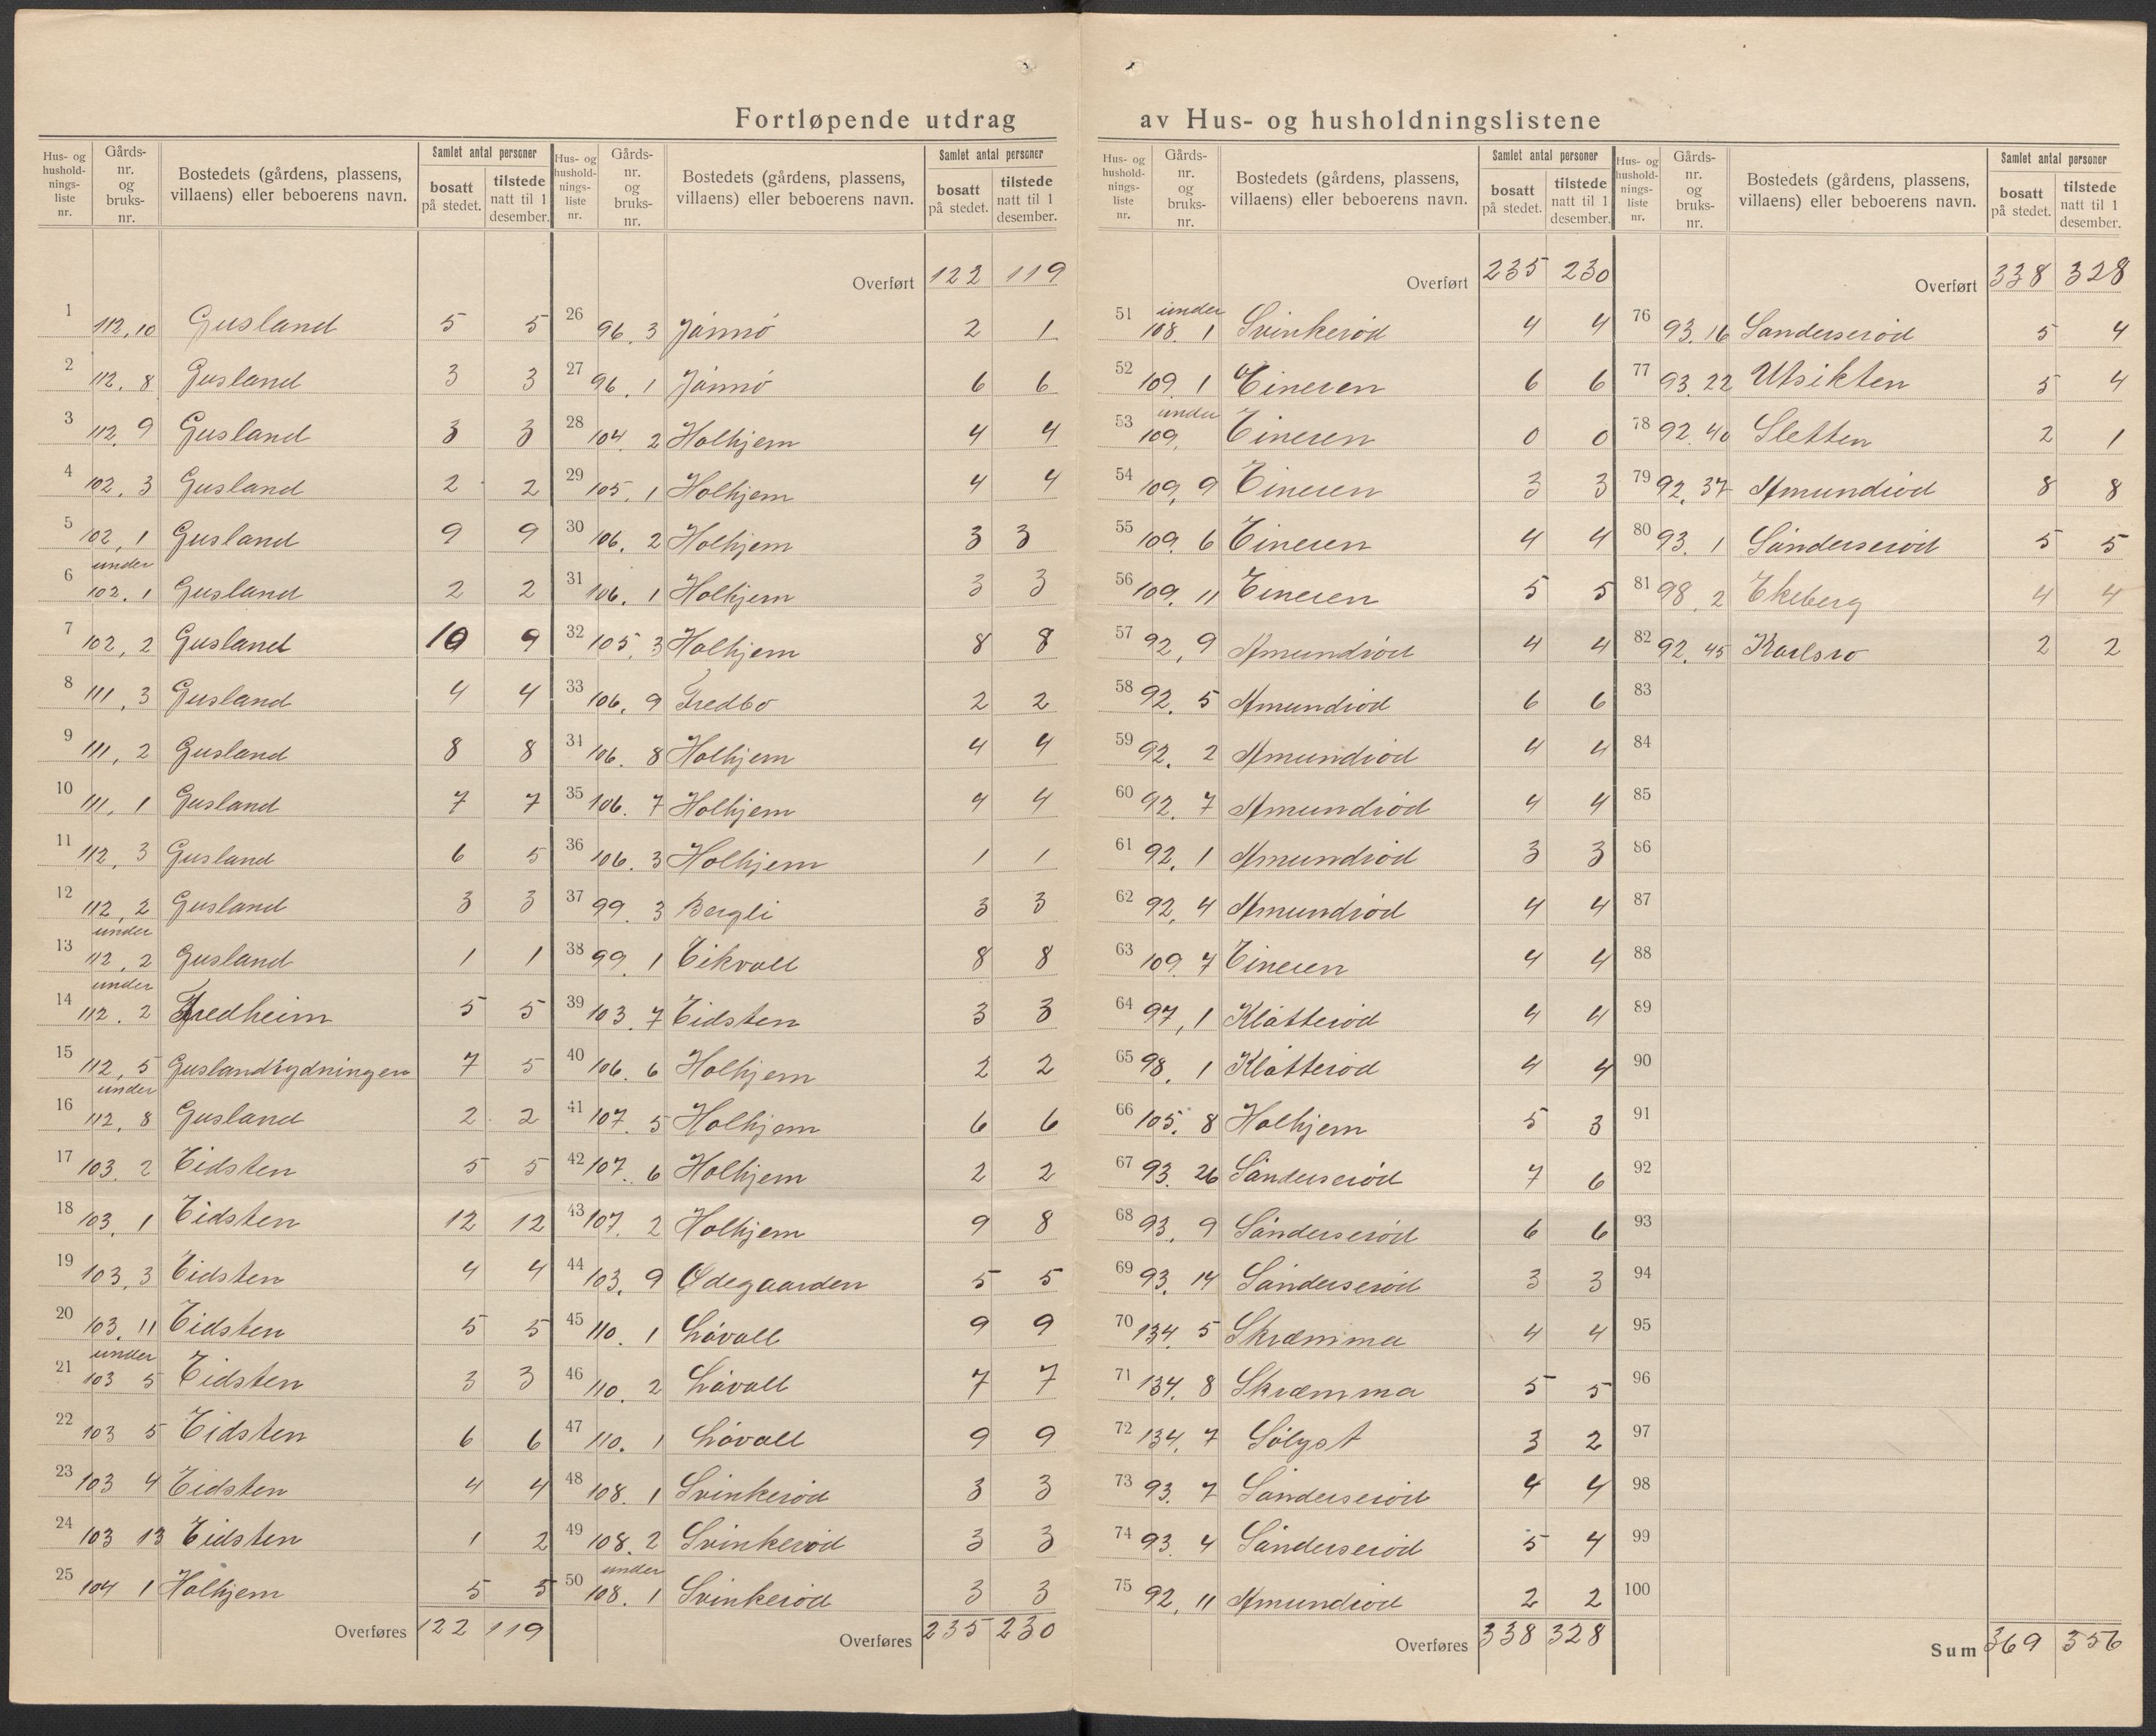 Fortløpende utdrag av Hus- og husholdningslistene
Hus- og hushold- nings- liste nr. | Gårds- nr. og bruks- nr. | Bostedets (gårdens, plassens, villaens) eller beboerens navn. | Samlet antal personer | bosatt på stedet. | tilstede natt til 1 desember.
1 112,10 Gusland 5 5
2 112. 8 Gusland 3 3
3 112. 9 Gusland 3 3
4 102. 3 Gusland 2 2
5 102, 1 Gusland 9 9
6 under 102. 1 Gusland 2 2
7 102, 2 Gusland 10 9
8 111, 3 Gusland 4 4
9 111, 2 Gusland 8 8
10 111, 1 Gusland 7 7
11 112, 3 Gusland 6 5
12 112, 2 Gusland 3 3
13 under 112, 2 Gusland 1 1
14 under 112. 2 Fredheim 5 5
15 112, 5 Guslandrydningen 7 5
16 under 112, 8 Gusland 2 2
17 103. 2 Eidsten 5 5
18 103, 1 Eidsten 12 12
19 103, 3 Eidsten 4 4
20 103. 11 Eidsten 5 5
21 under 103 5 Eidsten 3 3
22 103 5 Eidsten 6 6
23 103 4 Eidsten 4 4
24 103 13 Eidsten 1 2
25 104 1 Holhjem 5 5
Overføres 122 119
Hus- og hushold- nings- liste nr. | Gårds- nr. og bruks- nr. | Bostedets (gårdens, plassens, villaens) eller beboerens navn. | Samlet antal personer | bosatt på stedet. | tilstede natt til 1 desember.
Overført 122 119
26 96. 3 Jønnø 2 1
27 96. 1 Jønnø 6 6
28 104. 2 Holhjem 4 4
29 105. 1 Holhjem 4 4
30 106. 2 Holhjem 3 3
31 106. 1 Holhjem 3 3
32 105. 3 Holhjem 8 8
33 106. 9 Fredbo 2 2
34 106. 8 Holhjem 4 4
35 106. 7 Holhjem 4 4
36 106. 3 Holhjem 1 1
37 99. 3 Bergli 3 3
38 99. 1 Eikvoll 8 8
39 103. 7 Eidsten 3 3
40 106. 6 Holhjem 2 2
41 107. 5 Holhjem 6 6
42 107. 6 Holhjem 2 2
43 107. 2 Holhjem 9 8
44 103. 9 Ødegaarden 5 5
45 110. 1 Løvall 9 9
46 110. 2 Løvall 7 7
47 110. 1 Løvall 9 9
48 108. 1 Svinkerød 3 3
49 108. 2 Svinkerød 3 3
50 under 108. 1 Svinkerød 3 3
Overføres 235 230
Hus- og hushold- nings- liste nr. | Gårds- nr. og bruks- nr. | Bostedets (gårdens, plassens, villaens) eller beboerens navn. | Samlet antal personer | bosatt på stedet. | tilstede natt til 1 desember.
Overført 235 230
51 under 108. 1 Svinkerød 4 4
52 109. 1 Eineren 6 6
53 under 109, Eineren 0 0
54 109, 9 Eineren 3 3
55 109. 6 Eineren 4 4
56 109. 11 Eineren 5 5
57 92, 9 Amundrød 4 4
58 92. 5 Amundrød 6 6
59 92. 2 Amundrød 4 4
60 92. 7 Amundrød 4 4
61 92. 1 Amundrød 3 3
62 92, 4 Amundrød 4 4
63 109. 7 Eineren 4 4
64 97, 1 Kløtterød 4 4
65 98. 1 Kløtterød 4 4
66 105. 8 Holhjem 5 3
67 93. 26 Sønderserød 7 6
68 93, 9 Sønderserød 6 6
69 93. 14 Sønderserød 3 3
70 134. 5 Skræmma 4 4
71 134. 8 Skræmma 5 5
72 134. 7 Sølyst 3 2
73 93. 7 Sønderserød 4 4
74 93. 4 Sønderserød 5 4
75 92, 11 Amundrød 2 2
Overføres 338 328
Hus- og hushold- nings- liste nr. | Gårds- nr. og bruks- nr. | Bostedets (gårdens, plassens, villaens) eller beboerens navn. | Samlet antal personer | bosatt på stedet. | tilstede natt til 1 desember.
Overført 338 328
76 93. 16 Sønderserød 5 4
77 93. 22 Utsikten 5 4
78 92. 40 Sletten 2 1
79 92. 37 Amundrød 8 8
80 93. 1 Sønderserød 5 5
81 98. 2 Ekeberg 4 4
82 92. 45 Karlsro 2 2
83
84
85
86
87
88
89
90
91
92
93
94
95
96
97
98
99
100
Sum 369 356